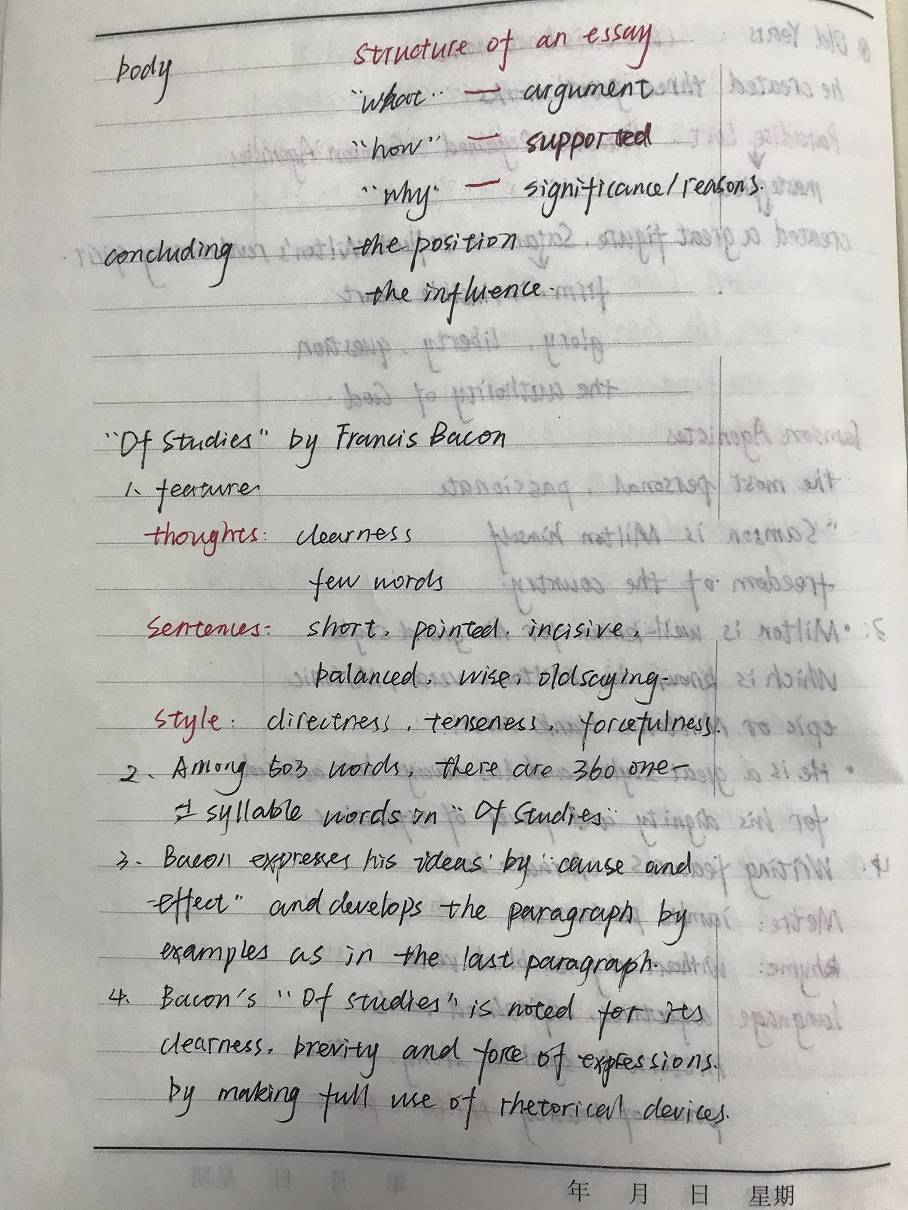 structure of an essay
body
"what" — argument
"how" — supported
"why" — significance/reasons.
concluding the position
the influence.
"Of Studies" by Francis Bacon
1、feature
thoughts: clearness
few words
Sentences: short, pointed, incisive,
balanced, wise, old saying-
Style: directness, tenseness, forcefulness.
2、Among 503 words, there are 360 one-
syllable words in "Of Studies"
3. Bacon expresses his ideas by "cause and
effect" and develops the paragraph by
examples as in the last paragraph.
4. Bacon's "Of studies" is noted for its
clearness, brevity and force of expressions.
by making full use of rhetorical devices.
年 月 日 星期